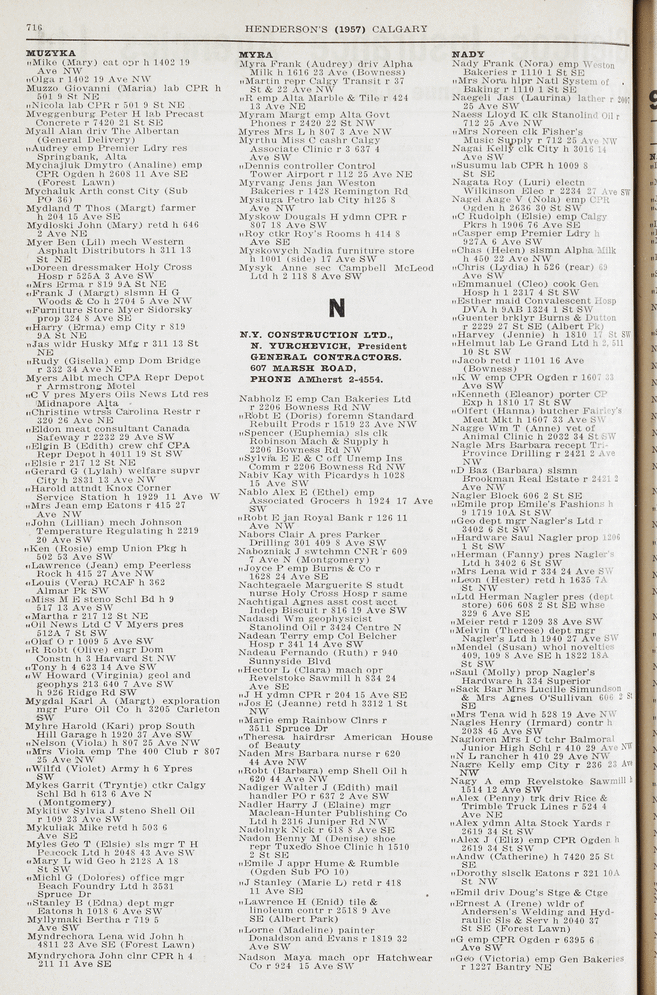 716
HENDERSON'S (1957) CALGARY
MUZYKA
„Mike (Mary) cat opr h 1402 19
Ave NW
„Olga r 1402 19 Ave NW
Muzzo Giovanni (Maria) lab CPR h
501 9 St NE
„Nicola lab CPR r 501 9 St NE
Mveggenburg Peter H lab Precast
Concrete r 7420 21 St SE
Myall Alan driv The Albertan
(General Delivery)
„Audrey emp Premier Ldry res
Springbank, Alta
Mychajluk Dmytro (Analine) emp
CPR Ogden h 2608 11 Ave SE
(Forest Lawn)
Mychaluk Arth const City (Sub
PO 36)
Mydland T Thos (Margt) farmer
h 204 15 Ave SE
Mydloski John (Mary) retd h 646
2 Ave NE
Myer Ben (Lil) mech Western
Asphalt Distributors h 311 13
St NE
„Doreen dressmaker Holy Cross
Hosp r 525A 3 Ave SW
„Mrs Erma r 819 9A St NE
„Frank J (Margt) slsmn H G
Woods & Co h 2704 5 Ave NW
„Furniture Store Myer Sidorsky
prop 324 8 Ave SE
„Harry (Erma) emp City r 819
9A St NE
„Jas widr Husky Mfg r 311 13 St
NE
„Rudy (Gisella) emp Dom Bridge
r 332 34 Ave NE
Myers Albt mech CPA Repr Depot
r Armstrong Motel
„C V pres Myers Oils News Ltd res
Midnapore Alta
„Christine wtrss Carolina Restr r
320 26 Ave NE
„Eldon meat consultant Canada
Safeway r 2232 29 Ave SW
„Elgin B (Edith) crew chf CPA
Repr Depot h 4011 19 St SW
„Elsie r 217 12 St NE
„Gerard G (Lylah) welfare supvr
City h 2831 13 Ave NW
„Harold attndt Knox Corner
Service Station h 1929 11 Ave W
„Mrs Jean emp Eatons r 415 27
Ave NW
„John (Lillian) mech Johnson
Temperature Regulating h 2219
20 Ave SW
„Ken (Rosie) emp Union Pkg h
502 53 Ave SW
„Lawrence (Jean) emp Peerless
Rock h 415 27 Ave NW
„Louis (Vera) RCAF h 362
Almar Pk SW
„Miss M E steno Schl Bd h 9
517 13 Ave SW
„Martha r 217 12 St NE
„Oil News Ltd C V Myers pres
512A 7 St SW
„Olaf O r 1009 5 Ave SW
„R Robt (Olive) engr Dom
Constn h 3 Harvard St NW
„Tony h 4 623 14 Ave SW
„W Howard (Virginia) geol and
geophys 213 640 7 Ave SW
h 926 Ridge Rd SW
Mygdal Karl A (Margt) exploration
mgr Pure Oil Co h 3205 Carleton
SW
Myhre Harold (Kari) prop South
Hill Garage h 1920 37 Ave SW
„Nelson (Viola) h 807 25 Ave NW
„Mrs Viola emp The 400 Club r 807
25 Ave NW
„Wilfd (Violet) Army h 6 Ypres
SW
Mykes Garrit (Tryntje) ctkr Calgy
Schl Bd h 613 6 Ave N
(Montgomery)
Mykitiw Sylvia J steno Shell Oil
r 109 23 Ave SW
Mykuliak Mike retd h 503 6
Ave SE
Myles Geo T (Elsie) sls mgr T H
Peacock Ltd h 2048 43 Ave SW
„Mary L wid Geo h 2128 A 18
St SW
„Michl G (Dolores) office mgr
Beach Foundry Ltd h 3531
Spruce Dr
„Stanley B (Edna) dept mgr
Eatons h 1018 6 Ave SW
Myllymaki Bertha r 719 5
Ave SW
Myndrechora Lena wid John h
4811 23 Ave SE (Forest Lawn)
Myndrychora John clnr CPR h 4
211 11 Ave SE
MYRA
Myra Frank (Audrey) driv Alpha
Milk h 1616 23 Ave (Bowness)
„Martin repr Calgy Transit r 37
St & 22 Ave NW
„R emp Alta Marble & Tile r 424
13 Ave NE
Myram Margt emp Alta Govt
Phones r 2420 22 St NW
Myres Mrs L h 807 3 Ave NW
Myrthu Miss C cashr Calgy
Associate Clinic r 3 637 4
Ave SW
„Dennis controller Control
Tower Airport r 112 25 Ave NE
Myrvang Jens jan Weston
Bakeries r 1428 Remington Rd
Mysiuga Petro lab City h125 8
Ave NW
Myskow Dougals H ydmn CPR r
807 18 Ave SW
„Roy ctkr Roy's Rooms h 414 8
Ave SE
Myskowych Nadia furniture store
h 1001 (side) 17 Ave SW
Mysyk Anne sec Campbell McLeod
Ltd h 2 118 8 Ave SW
N
N.Y. CONSTRUCTION LTD.,
N. YURCHEVICH, President
GENERAL CONTRACTORS.
607 MARSH ROAD,
PHONE AMherst 2-4554.
Nabholz E emp Can Bakeries Ltd
r 2206 Bowness Rd NW
„Robt E (Doris) foremn Standard
Rebuilt Prods r 1519 23 Ave NW
„Spencer (Euphemia) sls clk
Robinson Mach & Supply h
2206 Bowness Rd NW
„Sylvia E E & C off Unemp Ins
Comm r 2206 Bowness Rd NW
Nabiv Kay with Picardys h 1028
15 Ave SW
Nablo Alex E (Ethel) emp
Associated Grocers h 1924 17 Ave
SW
„Robt E jan Royal Bank r 126 11
Ave NW
Nabors Clair A pres Parker
Drilling 301 409 8 Ave SW
Nabozniak J swtchmn CNR r 609
7 Ave N (Montgomery)
„Joyce P emp Burns & Co r
1628 24 Ave SE
Nachtegaele Marguerite S studt
nurse Holy Cross Hosp r same
Nachtigal Agnes asst cost acct
Indep Biscuit r 816 19 Ave SW
Nadasdi Wm geophysicist
Stanolind Oil r 3424 Centre N
Nadean Terry emp Col Belcher
Hosp r 341 14 Ave SW
Nadeau Fernando (Ruth) r 940
Sunnyside Blvd
„Hector L (Clara) mach opr
Revelstoke Sawmill h 834 24
Ave SE
„J H ydmn CPR r 204 15 Ave SE
„Jos E (Jeanne) retd h 3312 1 St
NW
„Marie emp Rainbow Clnrs r
3511 Spruce Dr
„Theresa hairdrsr American House
of Beauty
Naden Mrs Barbara nurse r 620
44 Ave NW
„Robt (Barbara) emp Shell Oil h
620 44 Ave NW
Nadiger Walter J (Edith) mail
handler PO r 637 2 Ave SW
Nadler Harry J (Elaine) mgr
Maclean-Hunter Publishing Co
Ltd h 2316 Juniper Rd NW
Nadolnyk Nick r 618 8 Ave SE
Nadon Benny M (Denise) shoe
repr Tuxedo Shoe Clinic h 1510
2 St SE
„Emile J appr Hume & Rumble
(Ogden Sub PO 10)
„J Stanley (Marie L) retd r 418
11 Ave SE
„Lawrence H (Enid) tile &
linoleum contr r 2518 9 Ave
SE (Albert Park)
„Lorne (Madeline) painter
Donaldson and Evans r 1819 32
Ave SW
Nadson Maya mach opr Hatchwear
Co r 924 15 Ave SW
NADY
Nady Frank (Nora) emp Weston
Bakeries r 1110 1 St SE
„Mrs Nora hlpr Natl System of
Baking r 1110 1 St SE
Naegeli Jas (Laurina) lather r 2007
25 Ave SW
Naess Lloyd K clk Stanolind Oil r
712 25 Ave NW
„Mrs Noreen clk Fisher's
Music Supply r 712 25 Ave NW
Nagai Kelly clk City h 3016 14
Ave SW
„Susumu lab CPR h 1009 8
St SE
Nagata Roy (Luri) electn
Wilkinson Elec r 2234 27 Ave SW
Nagel Aage V (Nola) emp CPR
Ogden h 2636 30 St SW
„C Rudolph (Elsie) emp Calgy
Pkrs h 1906 76 Ave SE
„Casper emp Premier Ldry h
927A 6 Ave SW
„Chas (Helen) slsmn Alpha Milk
h 450 22 Ave NW
„Chris (Lydia) h 526 (rear) 69
Ave SW
„Emmanuel (Cleo) cook Gen
Hosp h 1 2317 4 St SW
„Esther maid Convalescent Hosp
DVA h 9AB 1324 1 St SW
„Guenter brklyr Burns & Dutton
r 2229 27 St SE (Albert Pk)
„Harvey (Jennie) h 1810 17 St SW
„Helmut lab Le Grand Ltd h 2, 511
10 St SW
„Jacob retd r 1101 16 Ave
(Bowness)
„K W emp CPR Ogden r 1607 33
Ave SW
„Kenneth (Eleanor) porter CP
Exp h 1810 17 St SW
„Olfert (Hanna) butcher Fairley's
Meat Mkt h 1607 33 Ave SW
Nagge Wm T (Anne) vet of
Animal Clinic h 2032 34 St SW
Nagle Mrs Barbara recept Tri-
Province Drilling r 2421 2 Ave
NW
„D Baz (Barbara) slsmn
Brookman Real Estate r 2421 2
Ave NW
Nagler Block 606 2 St SE
„Emile prop Emile's Fashions h
9 1719 10A St SW
„Geo dept mgr Nagler's Ltd r
3402 6 St SW
„Hardware Saul Nagler prop 1206
1 St SW
„Herman (Fanny) pres Nagler's
Ltd h 3402 6 St SW
„Mrs Lena wid r 334 24 Ave SW
„Leon (Hester) retd h 1635 7A
St NW
„Ltd Herman Nagler pres (dept
store) 606 608 2 St SE whse
329 6 Ave SE
„Meier retd r 1209 38 Ave SW
„Melvin (Therese) dept mgr
Nagler's Ltd h 1940 27 Ave SW
„Mendel (Susan) whol novelties
409, 109 8 Ave SE h 1822 18A
St SW
„Saul (Molly) prop Nagler's
Hardware h 334 Superior
„Sack Bar Mrs Lucille Simundson
& Mrs Agnes O'Sullivan 606 2 St
SE
„Mrs Tena wid h 528 19 Ave NW
Nagles Henry (Irmard) contr h
2038 45 Ave SW
Nagloren Mrs I C tchr Balmoral
Junior High Schl r 410 29 Ave NW
„N L rancher h 410 29 Ave NW
Nagre Kelly emp City r 236 23 Ave
NW
Nagy A emp Revelstoke Sawmill h
1514 12 Ave SW
„Alex (Penny) trk driv Rice &
Trimble Truck Lines r 524 4
Ave NE
„Alex ydmn Alta Stock Yards r
2619 34 St SW
„Alex J (Eliz) emp CPR Ogden h
2619 34 St SW
„Andw (Catherine) h 7420 25 St
SE
„Dorothy slsclk Eatons r 321 10A
St NW
„Emil driv Doug's Stge & Ctge
„Ernest A (Irene) wldr of
Andersen's Welding and Hyd-
raulic Sls & Serv h 2040 37
St SE (Forest Lawn)
„G emp CPR Ogden r 6395 6
Ave SW
„Geo (Victoria) emp Gen Bakeries
r 1227 Bantry NE